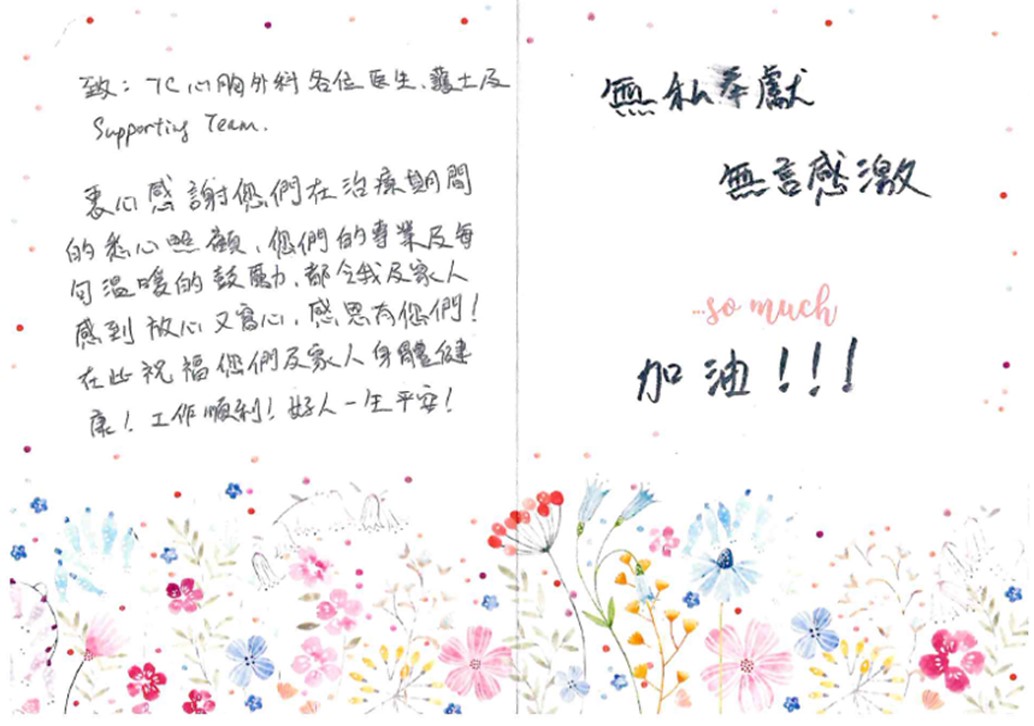 致：7C心胸外科各位医生、護士及
Supporting Team.
衷心感謝您們在治療期間
的悉心照顧，您們的專業及每
句溫暖的鼓勵，都令我及家人
感到放心又窩心，感恩有您們！
在此祝福您們及家人身體健
康！工作順利！好人一生平安！
無私奉獻
無言感激
...so much
加油！！！